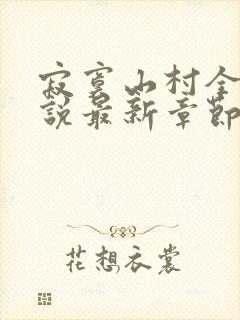 寂寞山村全
說最新章節
花想衣裳